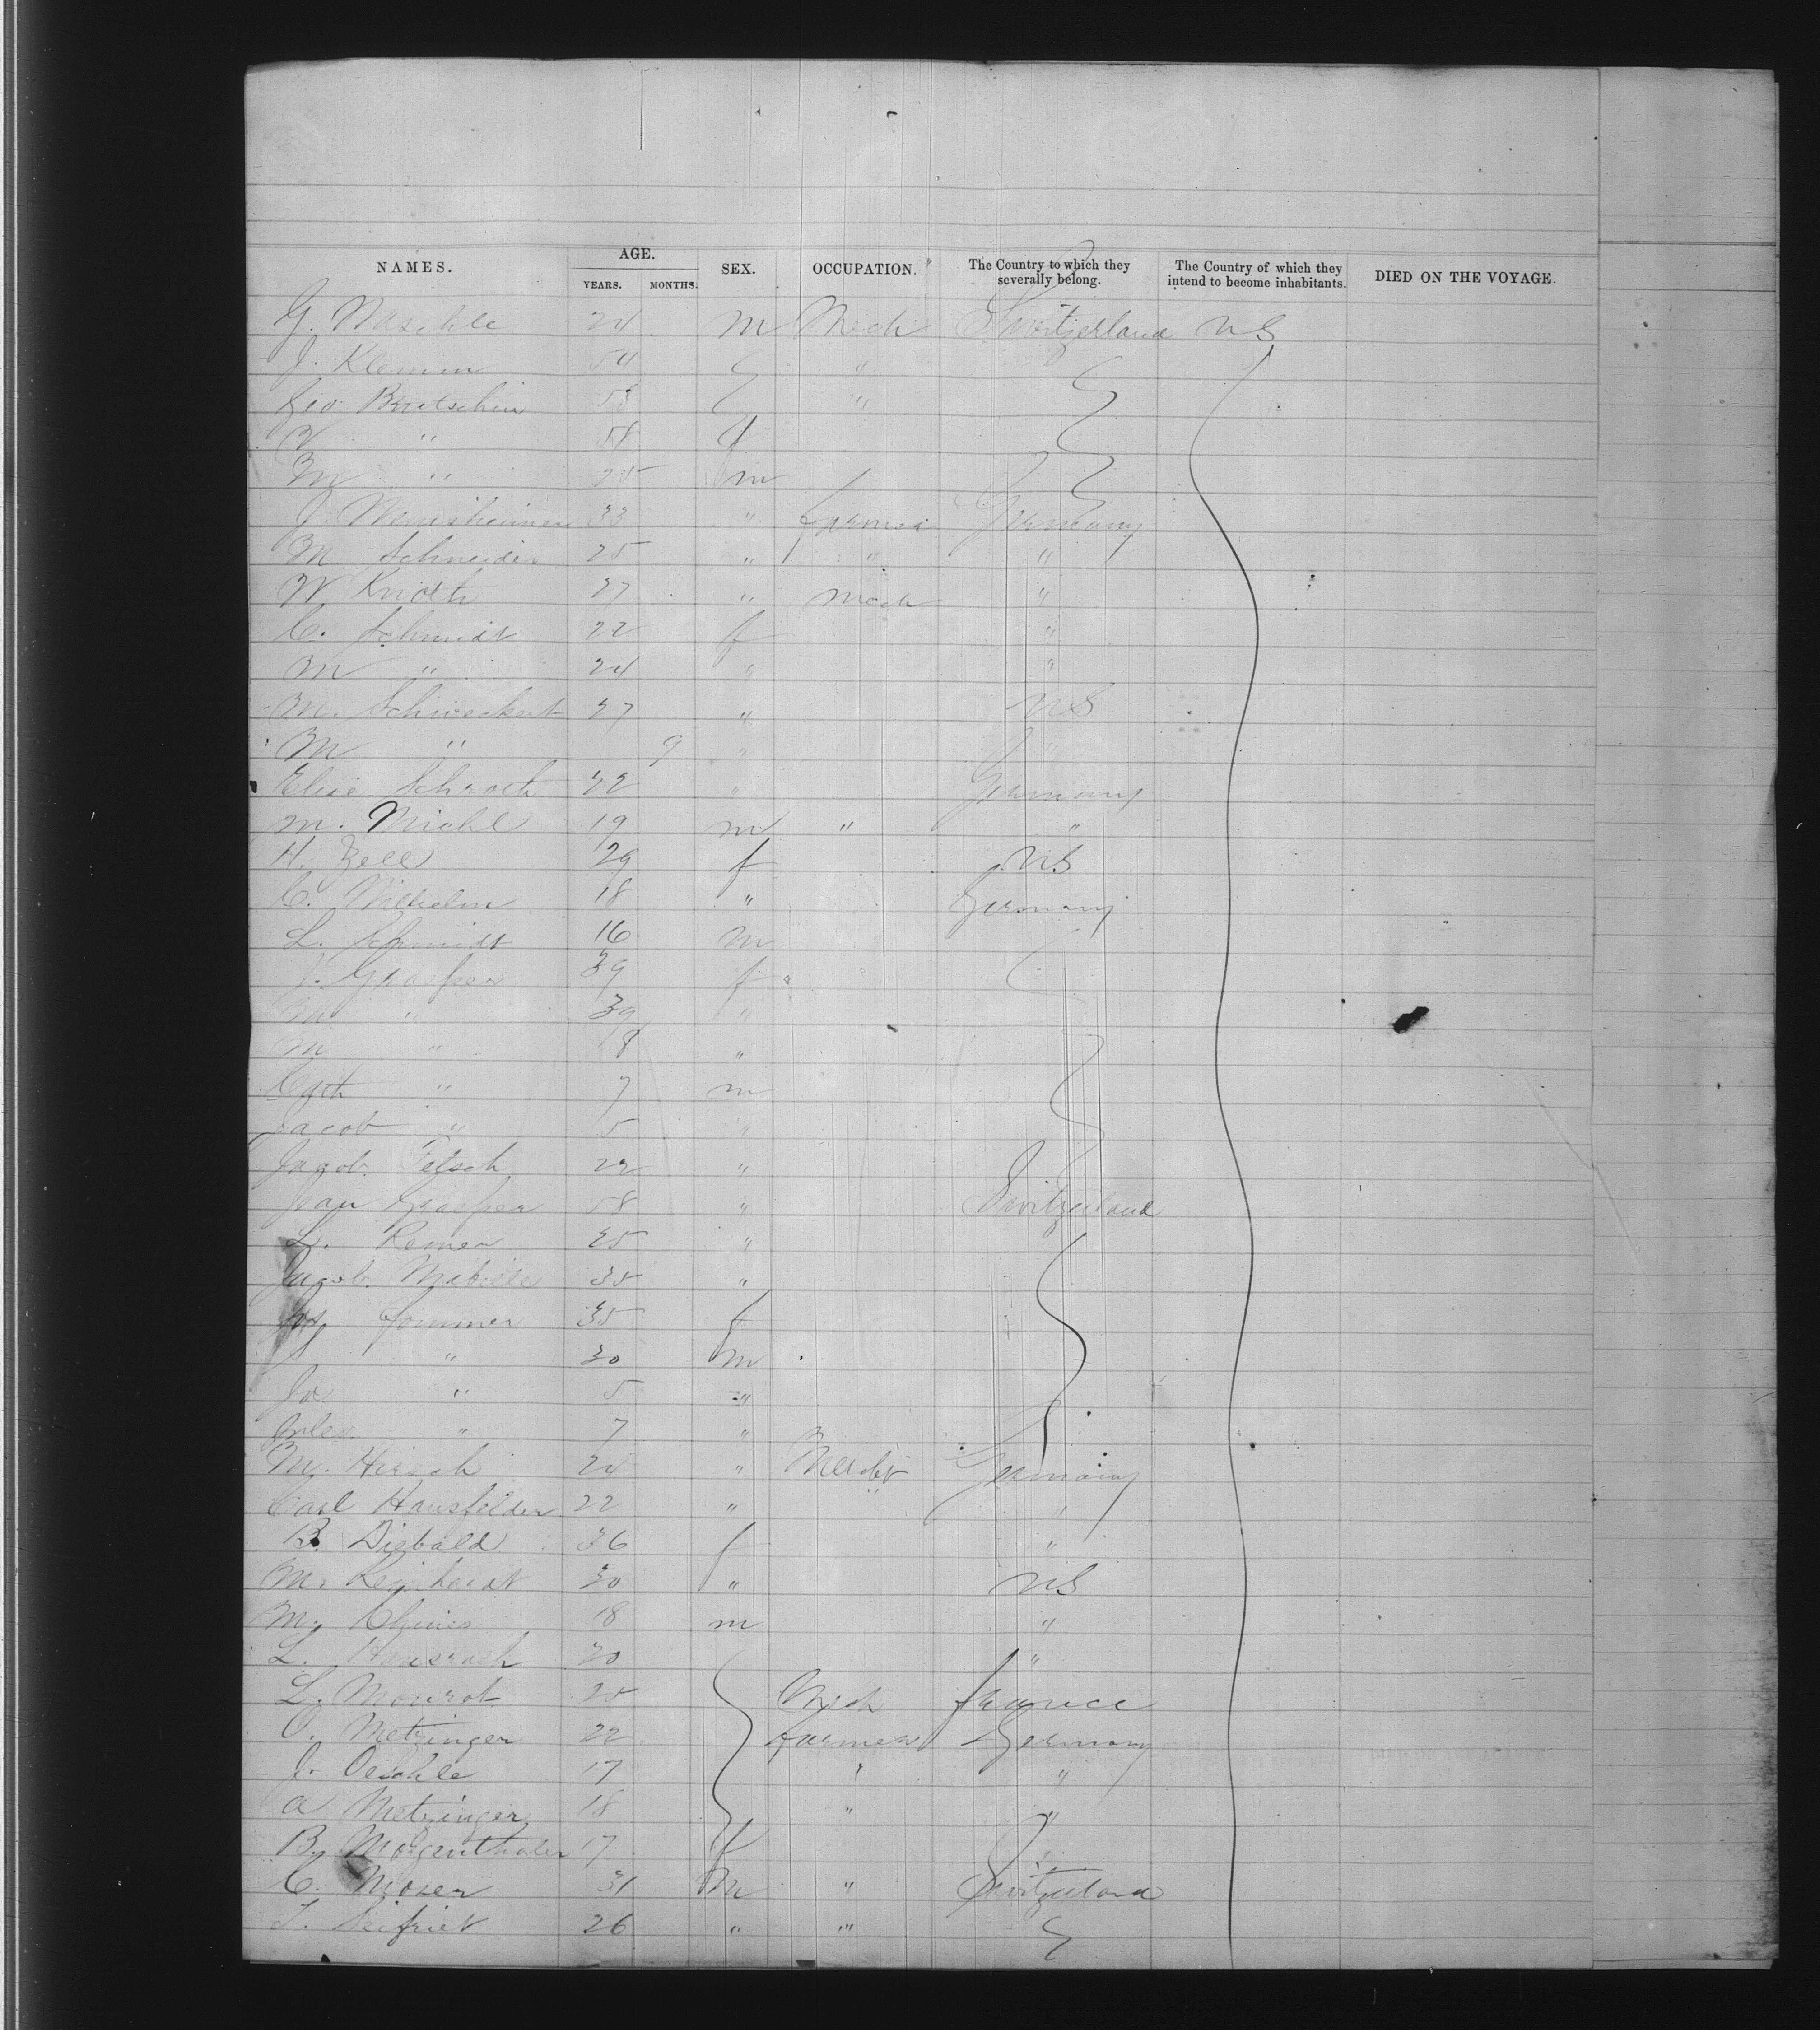 NAMES. AGE. YEARS. MONTHS. SEX. OCCUPATION. The Country to which they severally belong. The Country of which they intend to become inhabitants. DIED ON THE VOYAGE.
G. Maschle 24 m Mech Switzerland US
J. Klemm 54 "
Geo. Bretschin 58 "
" 58 f
M " 25 m
J. 33 " farmer Germany
M Schneider 25 " " "
W Knoth 27 " Mech "
C. Schmidt 22 f "
M " 24 " "
M. Schweckert 27 " US
M " 9 " "
Elise Schroth 22 " Germany
M. Michl 19 m " "
H. Zell 29 f US
C. Wilhelm 18 " Germany
L. Schmidt 16 m
J. Graesser 39 f
M " 39 "
M " 18 "
Cath " 7 m
Jacob " 5 "
Jacob Fetsch 22 "
Jean Graesser 58 " Switzerland
L. Romer 25 "
Jacob 35 "
Jos Sommer 35 f
" 30 m
Jos " 5 "
" 7 "
M. Hirsch 24 " Mercht Germany
Carl Hausfelder 22 " " "
B. Diebald 36 f "
M. Reinhardt 30 " US
M. 18 m "
L. 20 "
L. Monrot 20 Mech France
O. Metzinger 22 farmer Germany
J. Oeschle 17 " "
A Metzinger 18 " "
B. Morgenthaler 17 f
C. Moser 31 m " Switzerland
Seifriet 26 " "